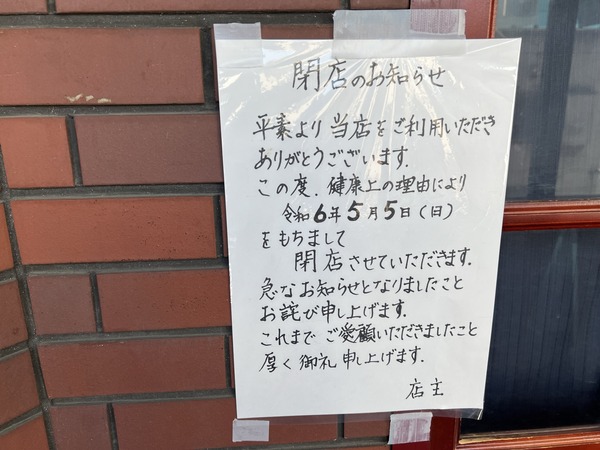 閉店のお知らせ
平素より当店をご利用いただき
ありがとうございます.
この度、健康上の理由により
令和6年5月5日(日)
をもちまして
閉店させていただきます.
急なお知らせとなりましたこと
お詫び申し上げます.
これまでご愛顧いただきましたこと
厚く御礼申し上げます.
店主